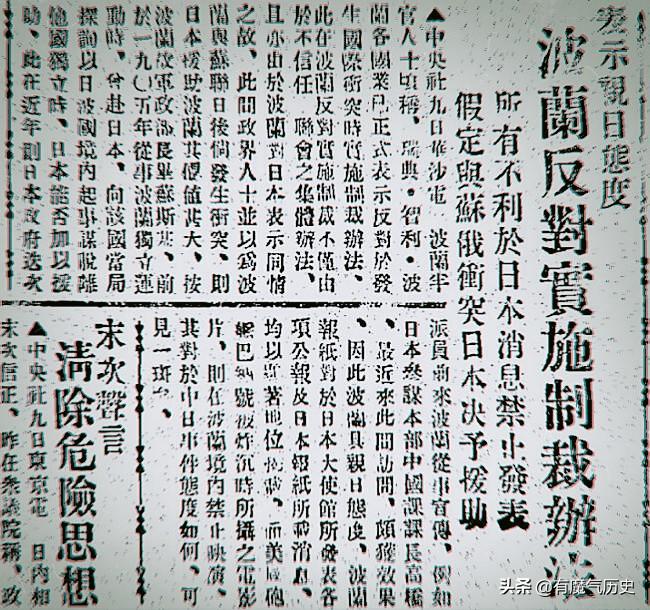 表示親日態度
波蘭反對實施制裁辦法
所有不利於日本消息禁止發表
假定與蘇俄衝突日本决予援助
▲中央社九日華沙電　波蘭半
官人士頃稱、瑞典、智利、波
蘭各國業已正式表示反對於發
生國際衝突時實施制裁辦法、
此在波蘭反對實施制裁不僅由
於不信任　聯會之集體辦法、
且亦由於波蘭對日本表示同情
之故、此間政界人士並以爲波
蘭與蘇聯日後倘發生衝突、則
日本援助波蘭其價值甚大、按
波蘭故軍政部長畢蘇斯基、前
於一九〇五年從事波蘭獨立運
動時、曾赴日本、向該國當局
探詢以日波國境內起事謀脫離
他國獨立時、日本能否加以援
助、此在近年則日本政府迭次
派員前來波蘭從事宣傳、例如
日本參謀本部中國課課長高橋
、最近來此間訪問、頗獲效果
、因此波蘭具親日態度、波蘭
報紙對於日本大使館所發表各
項公報及日本報紙所載消息、
均以顯著地位刊載、而美國砲
艦巴納號被炸沉時所攝之電影
片、則在波蘭境內禁止映演、
其對於中日事件態度如何、可
見一斑矣、
末次聲言
清除危險思想
▲中央社九日東京電　日內相
末次信正、昨在衆議院稱、政
头条 @有魔气历史